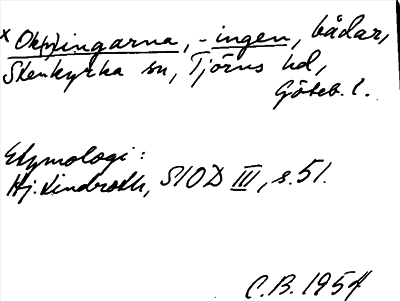 x Ok(n)ingarna, -ingen, bådar,
Stenkyrka sn, Tjörns hd,
Göteb. l.
Etymologi:
Hj. Lindroth, SIOD III, s. 51.
C.B. 1954